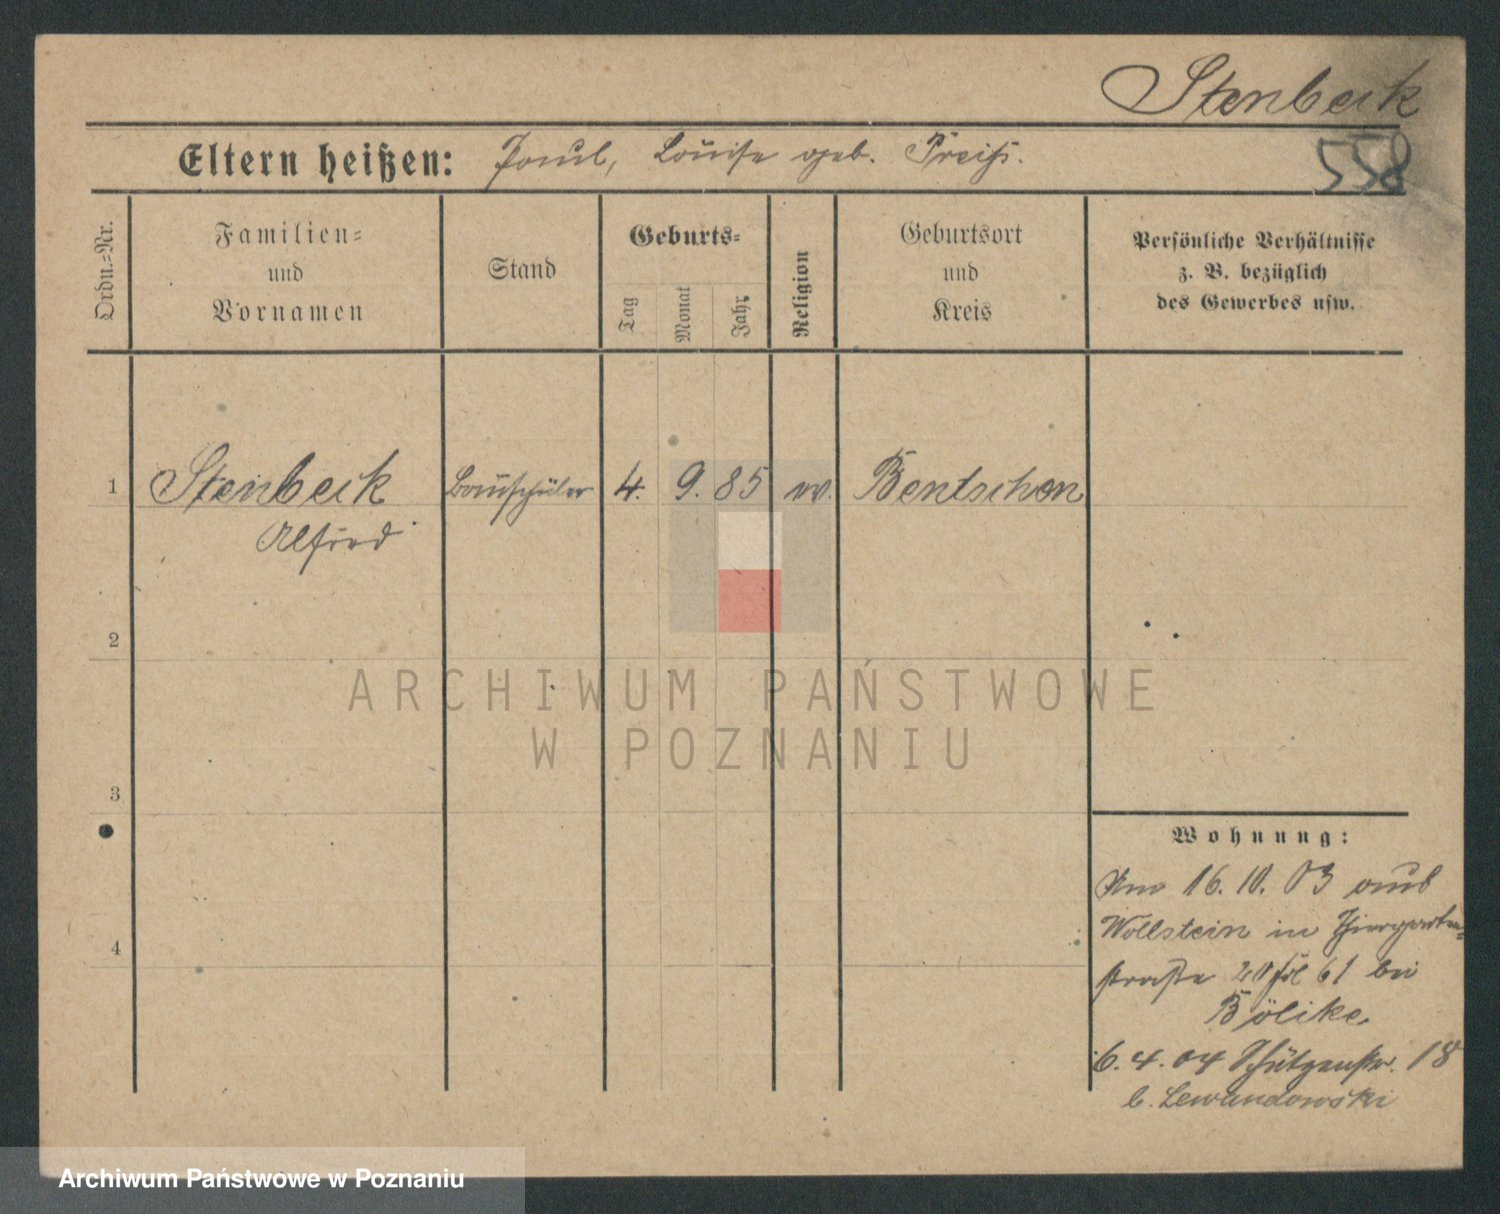 Stenbeck
Eltern heißen: Paul, Louise geb. Preiß.
558
Ordn.=Nr.
Familien=
und
Vornamen
Stand
Geburts=
Tag
Monat
Jahr
Religion
Geburtsort
und
Kreis
Persönliche Verhältnisse
z. B. bezüglich
des Gewerbes usw.
1 Stenbeck Bauschüler 4. 9. 85 ev. Bentschen
Alfred
2
3
4
Wohnung:
Am 16. 10. 03 aus
Wollstein in Thiergarten-
straße 20 61 bei
Bölike
6. 4. 04 Schützenstr. 18
b. Lewandowski
ARCHIWUM PAŃSTWOWE
W POZNANIU
Archiwum Państwowe w Poznaniu